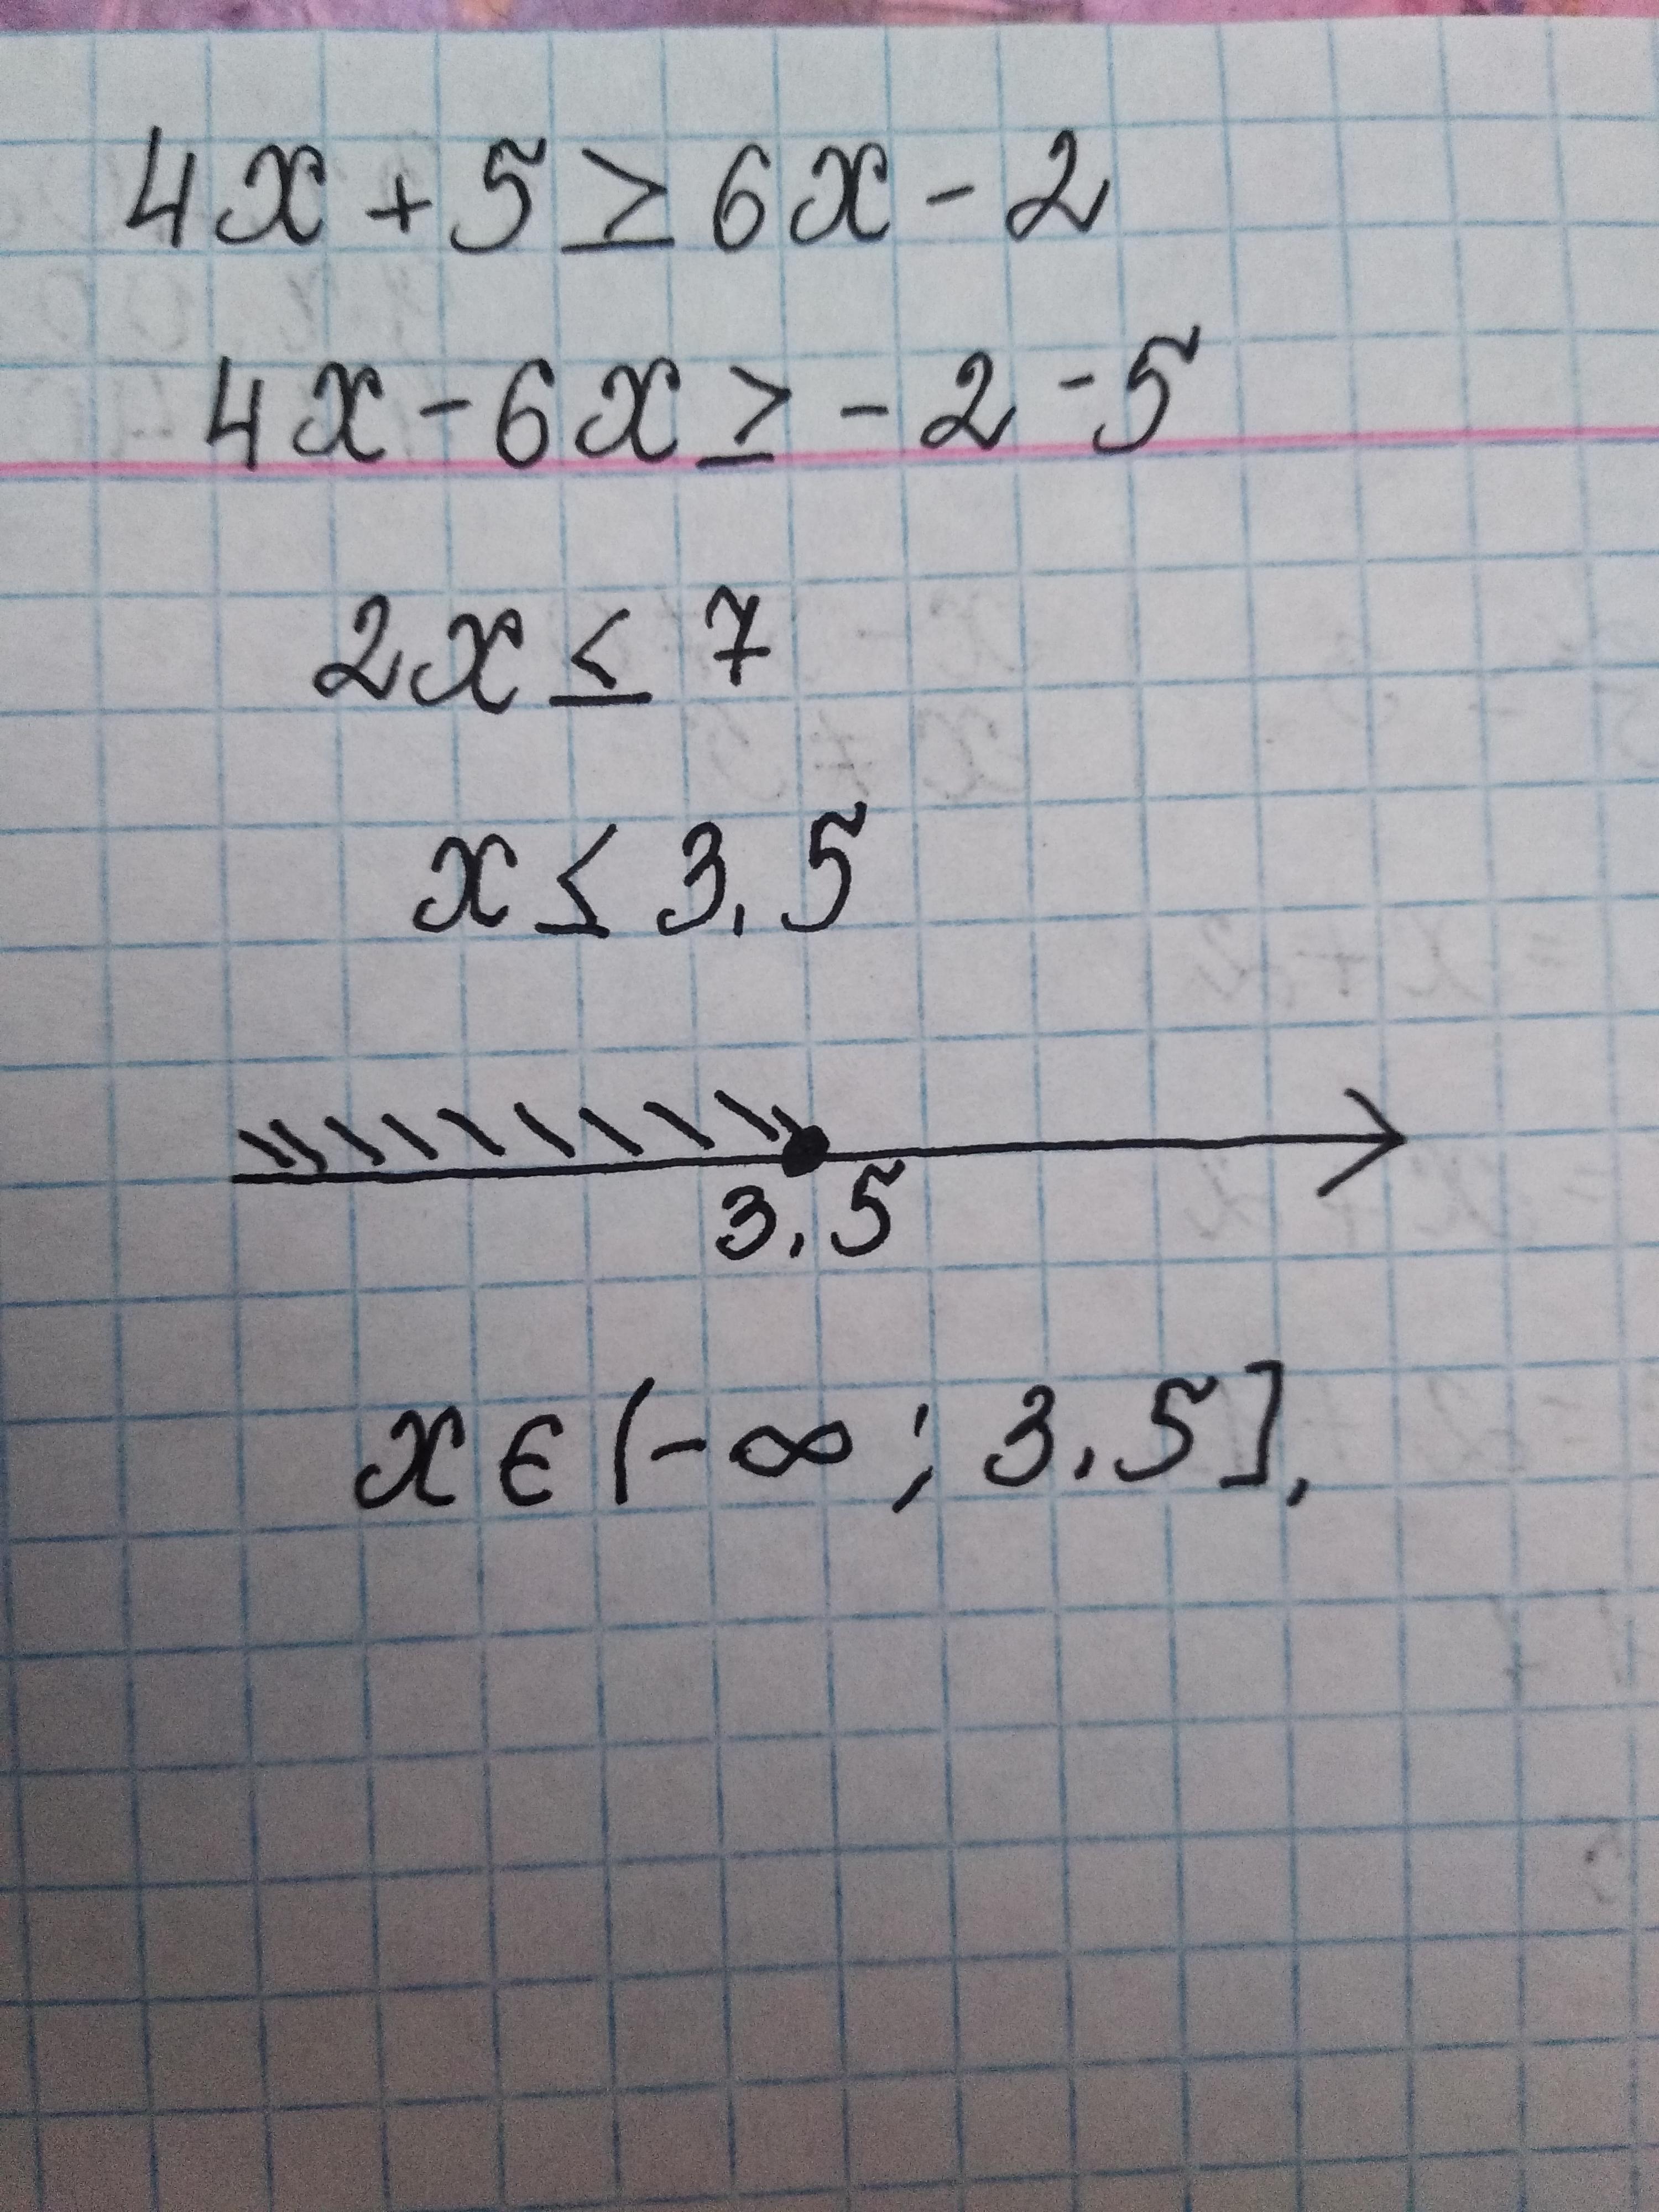 4x + 5 ≥ 6x - 2
4x - 6x ≥ - 2 - 5
2x ≤ 7
x ≤ 3,5
3,5
x ∈ (-∞ ; 3,5].